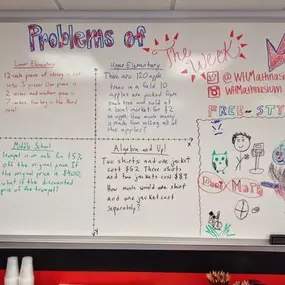 Problems of The Week
@WHMathnasium
WHMathnasium
FREE-STY
Lower Elementary
12 inch piece of string is cut
into 3 pieces. One piece is
2 inches and another piece is
7 inches. How long is the third
piece?
Upper Elementary
There are 120 apple
trees in a field. 10
apples are picked from
each tree and sold at
a local market for $2
an apple. How much money
is made from selling all of
the apples?
Middle School
trumpet is on sale for 15%
off the original price. If
the original price is $400,
what is the discounted
price of the trumpet?
Algebra and Up!
Two shirts and one jacket
cost $62. Three shirts
and two jackets cost $89.
How much would one shirt
and one jacket cost
separately?
x
Mary